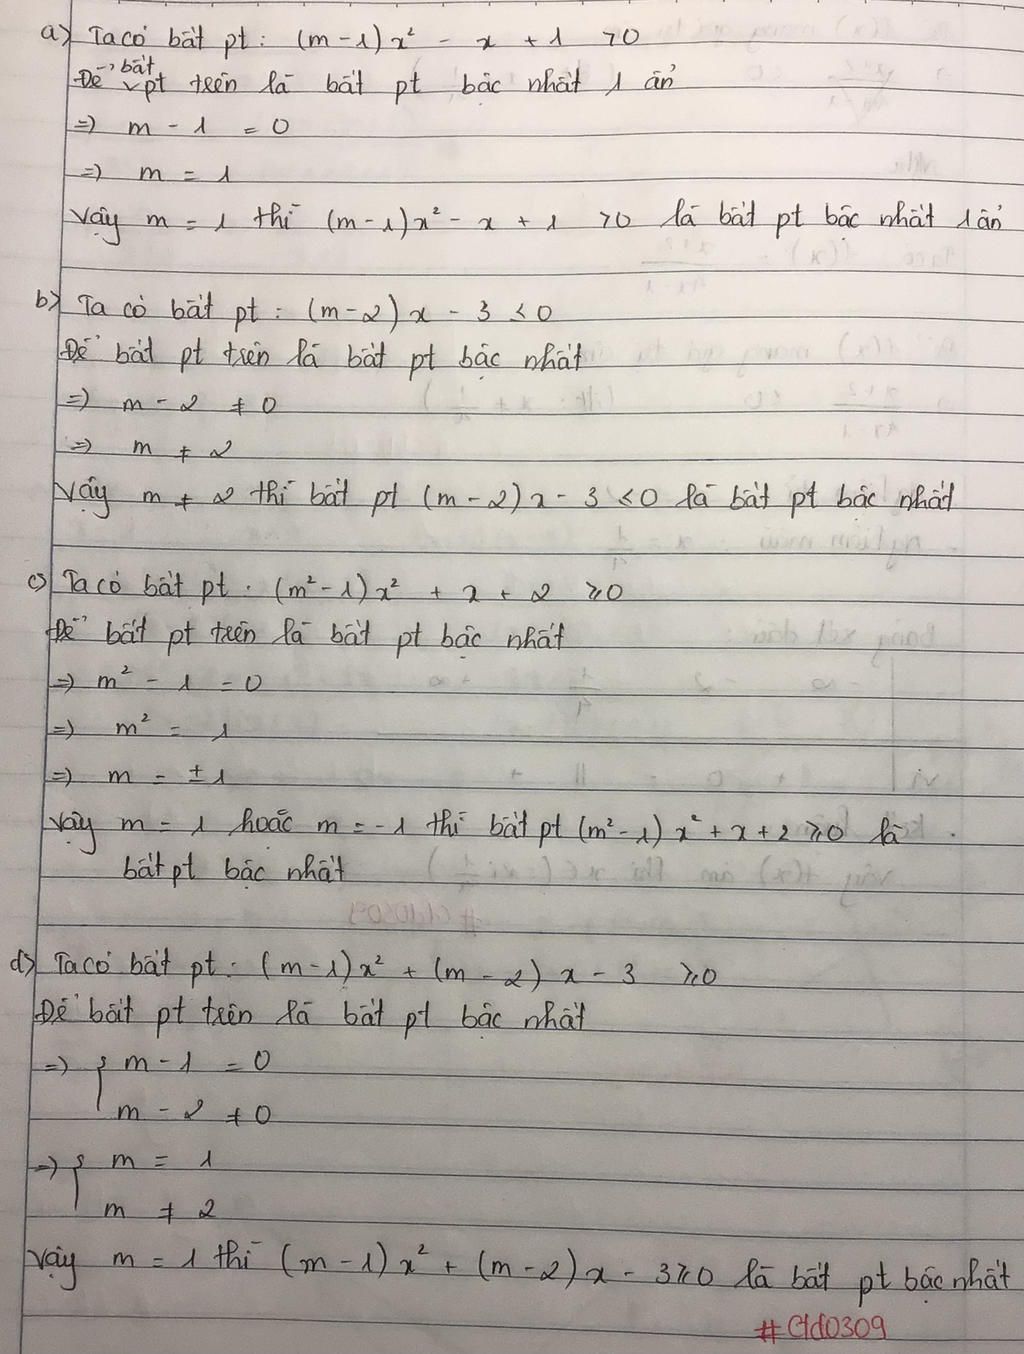 a) Ta có bất pt: (m-1)x² - x + 1 > 0
Để bất pt trên là bất pt bậc nhất 1 ẩn
=> m - 1 = 0
=> m = 1
Vậy m = 1 thì (m-1)x² - x + 1 > 0 là bất pt bậc nhất 1 ẩn
b) Ta có bất pt: (m-2)x - 3 < 0
Để bất pt trên là bất pt bậc nhất
=> m - 2 ≠ 0
=> m ≠ 2
Vậy m ≠ 2 thì bất pt (m-2)x - 3 < 0 là bất pt bậc nhất
c) Ta có bất pt: (m²-1)x² + x + 2 ≥ 0
Để bất pt trên là bất pt bậc nhất
=> m² - 1 = 0
=> m² = 1
=> m = ±1
Vậy m = 1 hoặc m = -1 thì bất pt (m²-1)x² + x + 2 ≥ 0 là
bất pt bậc nhất
d) Ta có bất pt: (m-1)x² + (m-2)x - 3 ≥ 0
Để bất pt trên là bất pt bậc nhất
=> { m - 1 = 0
m - 2 ≠ 0
=> { m = 1
m ≠ 2
Vậy m = 1 thì (m-1)x² + (m-2)x - 3 ≥ 0 là bất pt bậc nhất
#Ctd0309